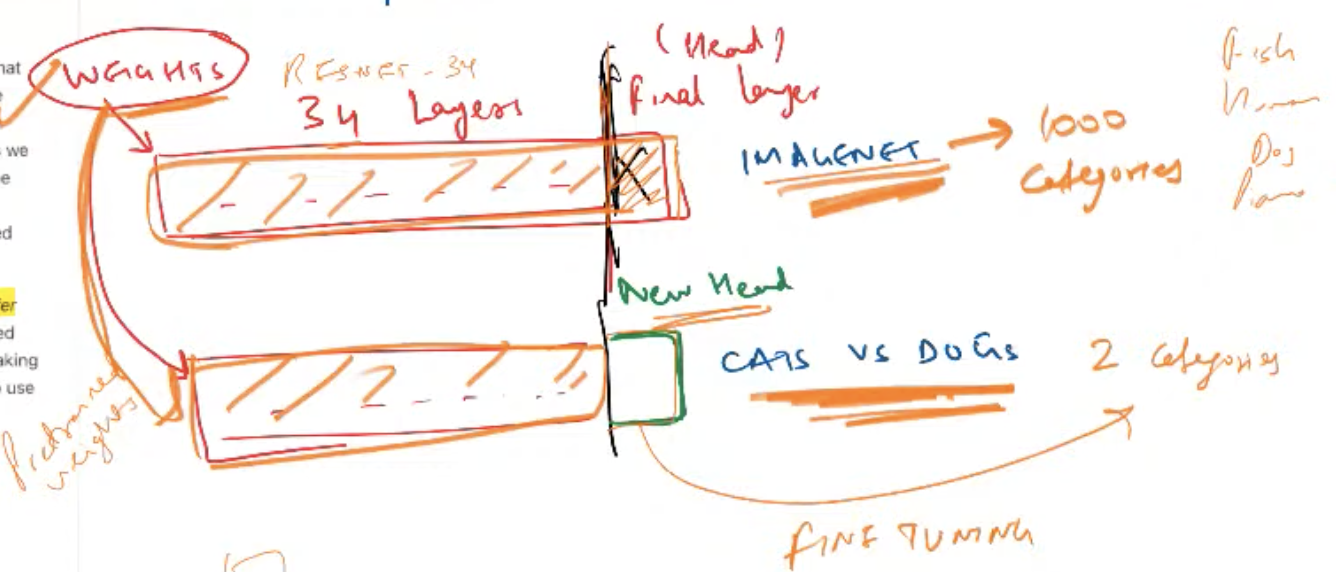 WEIGHTS
RESNET-34
34 Layers
(Head)
Final layer
IMAGENET
1000
Categories
Fish
Dog
New Head
CATS VS DOGS
2 Categories
Pretrained
weights
FINE TUNING
hat
we
e
ed
er
ed
aking
use